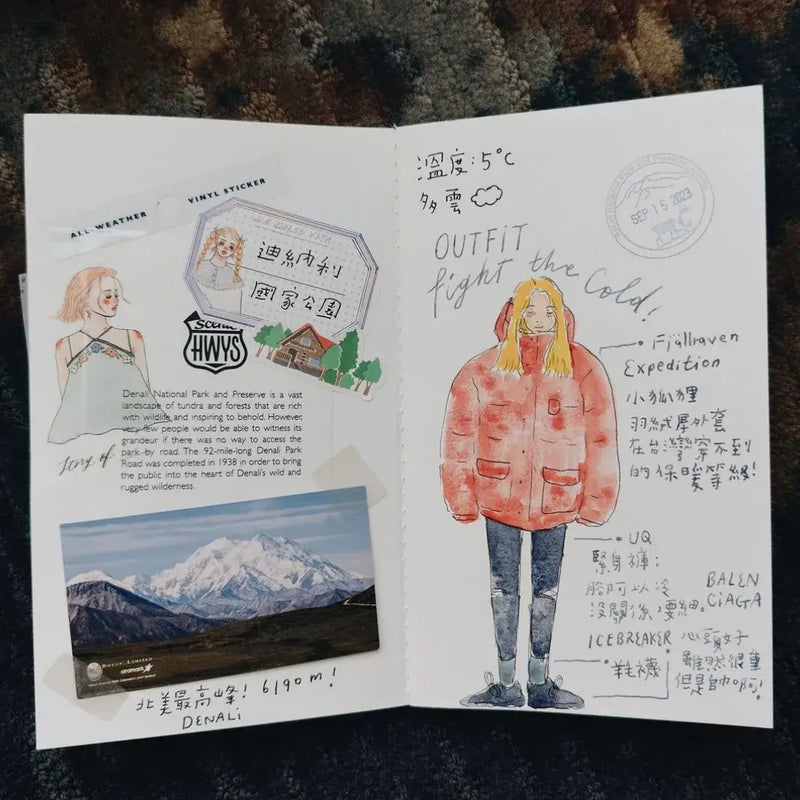 ALL-WEATHER VINYL STICKER
迪納利
國家公園
Scenic
HWYS
Denali National Park and Preserve is a vast
landscape of tundra and forests that are rich
with wildlife and inspiring to behold. However,
very few people would be able to witness its
grandeur if there was no way to access the
park by road. The 92-mile-long Denali Park
Road was completed in 1938 in order to bring
the public into the heart of Denali's wild and
rugged wilderness.
Story of
DOYON LIMITED
aramark
北美最高峰! 6190m!
DENALi
溫度:5°C
多雲
SEP 15 2023
OUTFiT
fight the Cold!
Fjällraven
Expedition
小狐狸
羽絨厚外套
在台灣穿不到
的保暖等級!
UQ
緊身褲:
腳可以冷
沒關係,要細。
BALEN
CiAGA
ICEBREAKER
羊毛襪
心頭好
雖然很重
但是帥啊!